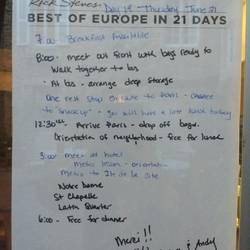 Rick Steves Day 19 - Thursday June 21
BEST OF EUROPE IN 21 DAYS
7:00 Breakfast Available
8:00 - meet out front with bags ready to
walk together to bus
At bus - arrange drop storage
One rest stop en route to Paris - chance
to "snack up" - you will have a late lunch today
12:30ish - Arrive Paris - drop off bags.
Orientation of neighborhood - free for lunch
3:00 meet at hotel
metro lesson - orientation
metro to Ile de la Cite
Notre Dame
St Chapelle
Latin Quarter
6:00 - Free for dinner
Merci!!
& Andy